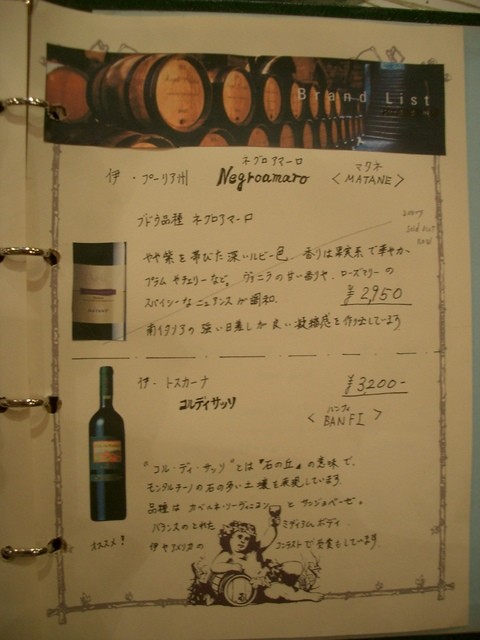 Brand List
ネグロアマーロ
マタネ
伊・プーリア州 Negroamaro <MATANE>
ブドウ品種 ネグロアマーロ
sorry
sold out
now
やや紫を帯びた深いルビー色 香りは果実系で華やか、
プラムやチェリーなど。ヴァニラの甘い香りや、ローズマリーの
スパイシーなニュアンスが調和。 ¥2,950
南イタリアの強い日差しが良い凝縮感を作り出しています
伊・トスカーナ ¥3,200-
コルディサッソ
バンフィ
<BANFI>
"コル・ディ・サッソ"とは"石の丘"の意味で、
モンタルチーノの石の多い土壌を表現しています
品種はカベルネ・ソーヴィニヨンとサンジョベーゼ。
バランスのとれたミディアムボディ
オススメ! 伊やアメリカのコンテストで受賞もしています。